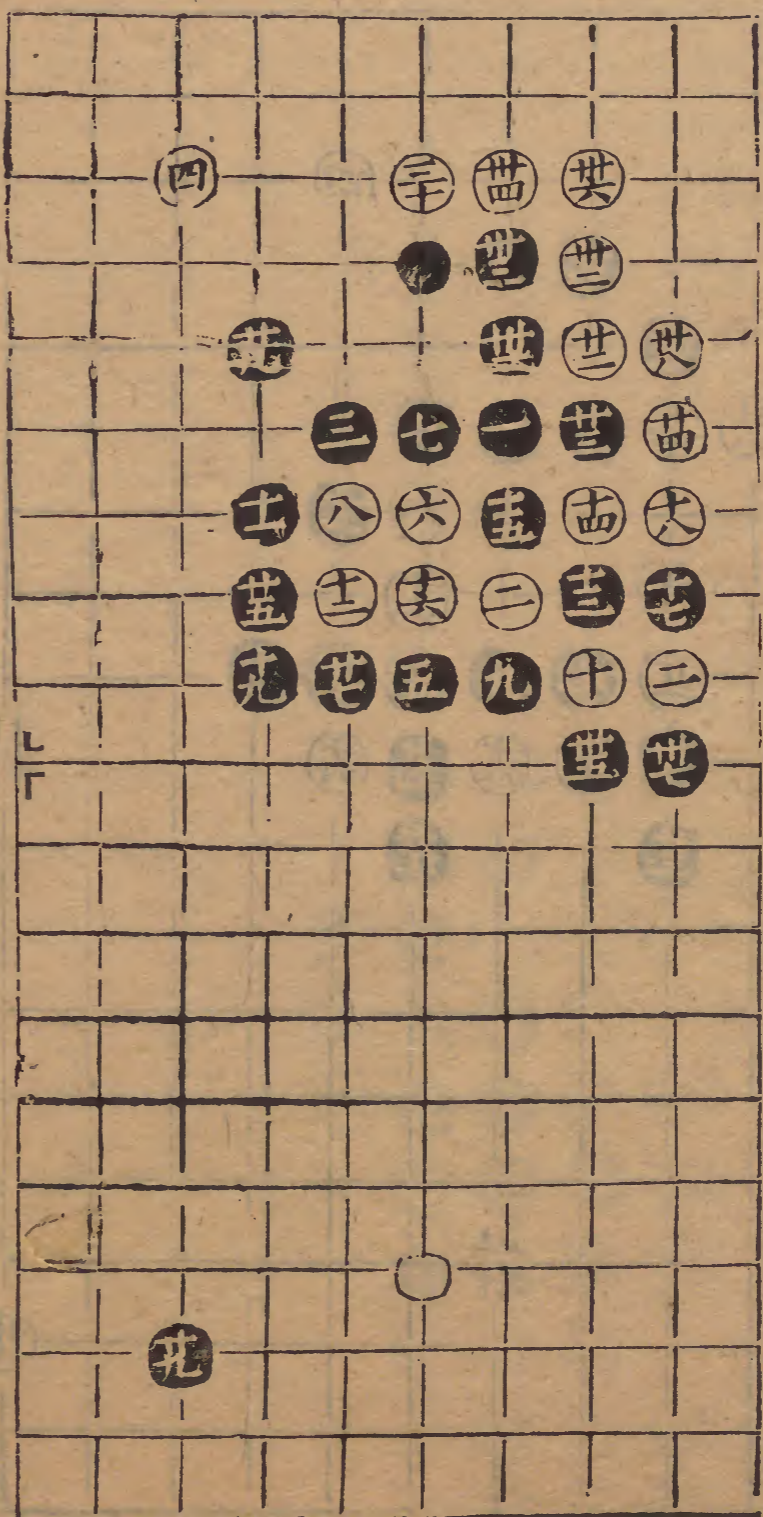 四 三十 卌四 卌六
卌三 卌二
卅一 廿二 卌八
三 七 一 廿三 廿四
十一 八 六 十五 十四 十八
廿五 十二 十六 二 十三 十七
十九 廿七 五 九 十 二
卌五 卌七
廿九